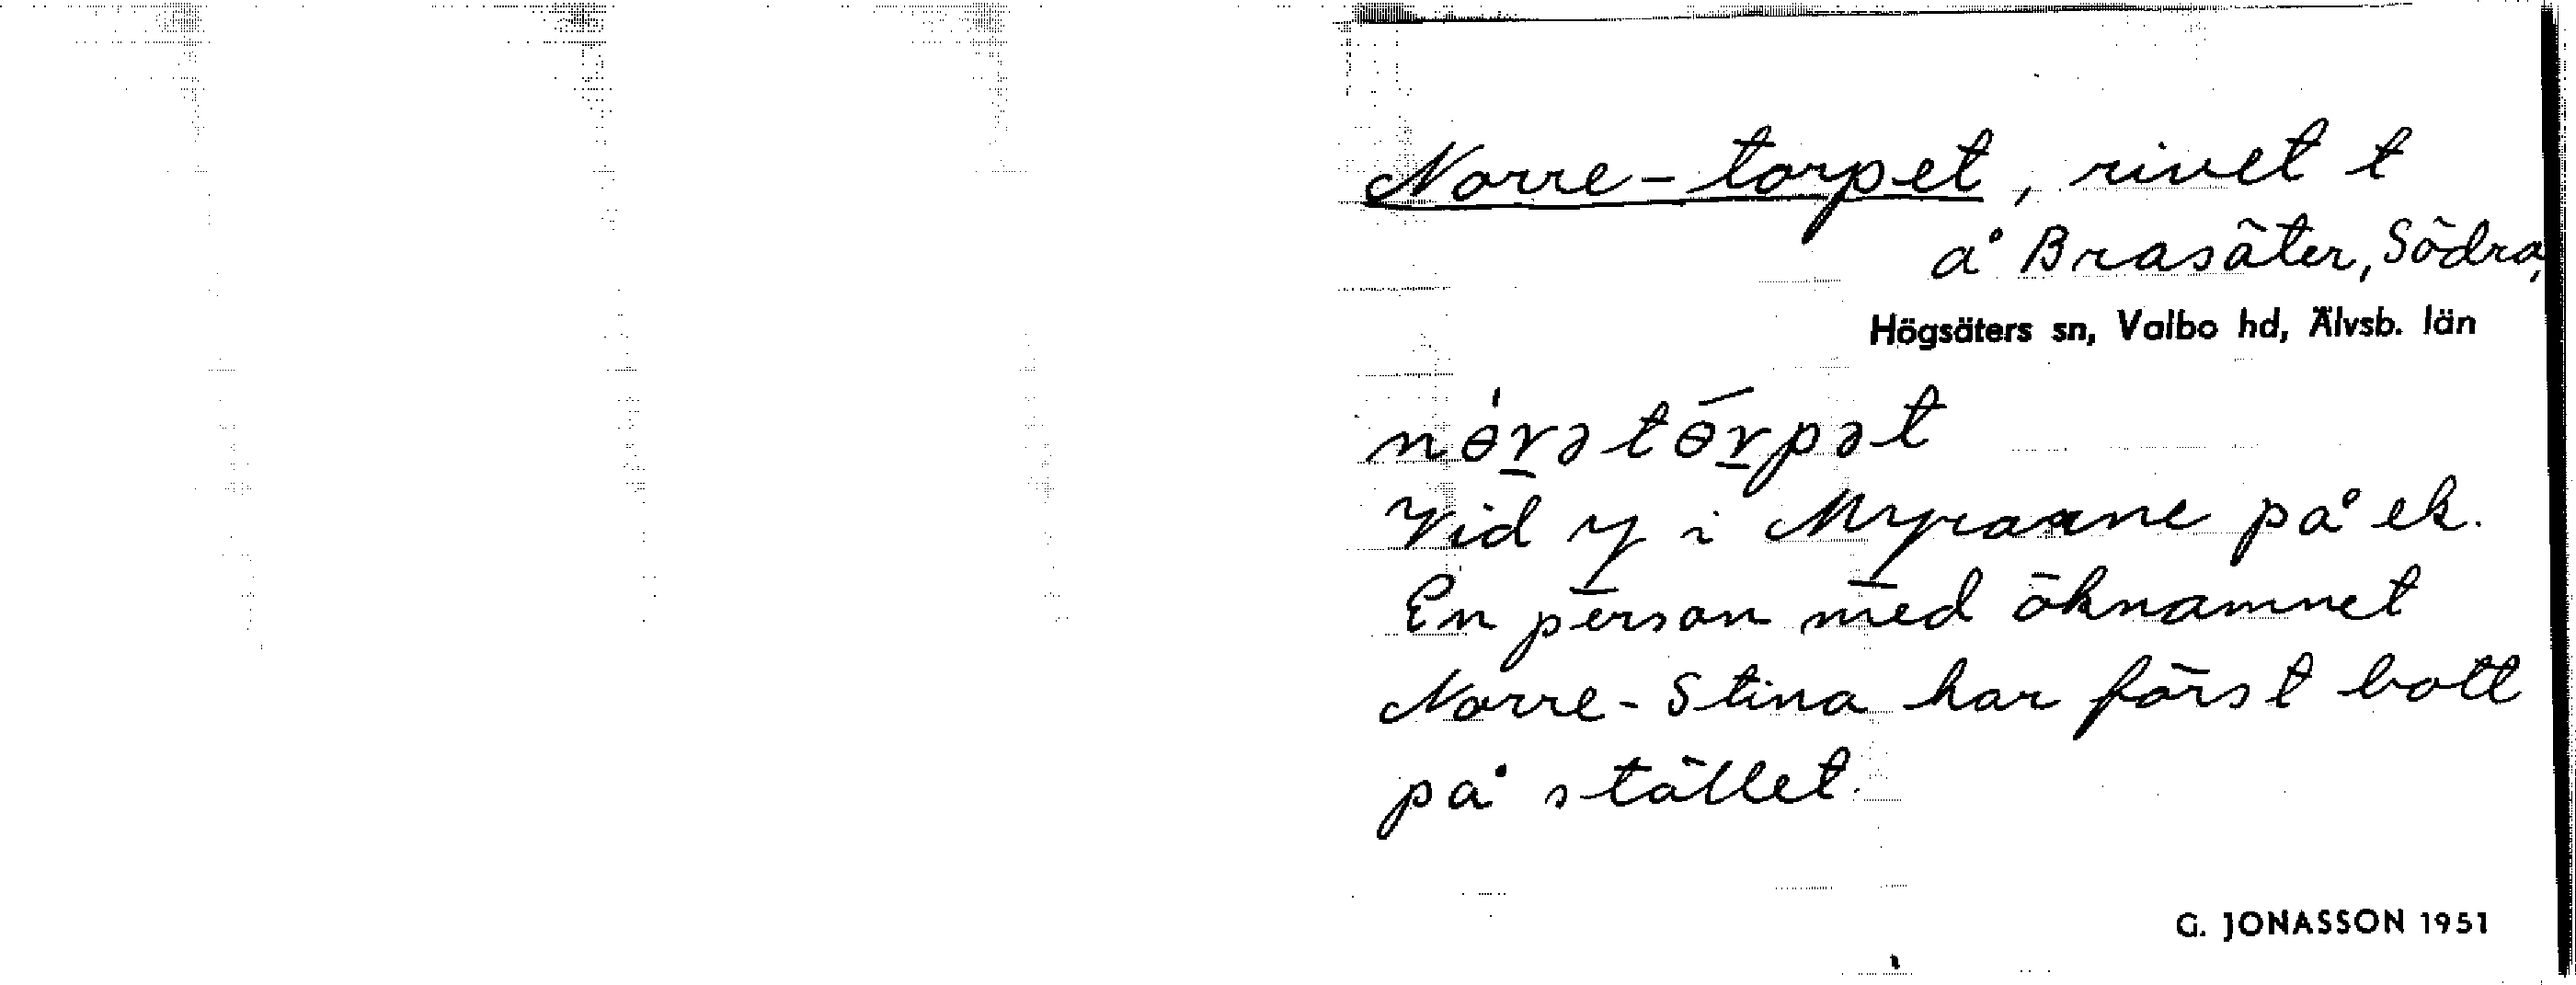 Norre-torpet, rivet t
å Brasäter, Södra,
Högsäters sn, Valbo hd, Älvsb. län
nɵ́rətɵ̄rpət
Vid y i Myrarne på ek.
En person med öknamnet
Norre-Stina har först bott
på stället.
G. JONASSON 1951